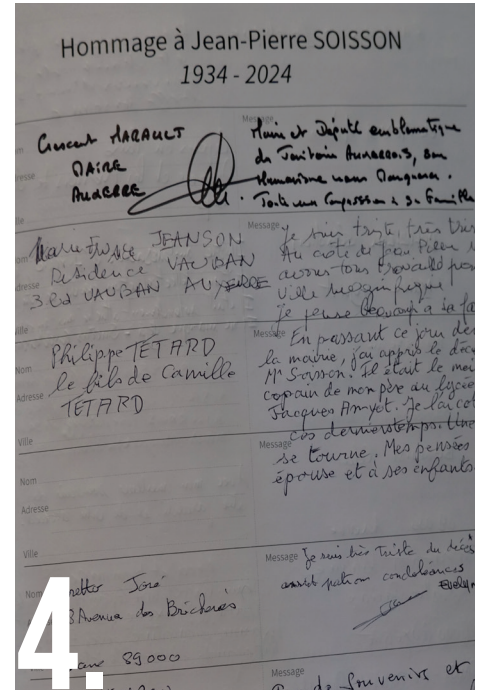 Hommage à Jean-Pierre SOISSON
1934 - 2024
Message
Crescent MARAULT
MAIRE
AUXERRE
Maire et Député emblématique
du Territoire Auxerrois, son
Humanisme nous Manquera.
Toute ma Compassion à sa Famille
JEANSON
Résidence VAUBAN
VAUBAN AUXERRE
Message
Je suis triste, très
Au côté de Jean Pierre
avons tous travaillé
ville magnifique
je pense beaucoup à sa
Nom
Philippe TETARD
le fils de Camille
Adresse
TETARD
Ville
Message
En passant ce jour
la mairie, j'ai appris le
Mr Soisson. Il était le
copain de mon père au lycée
Jacques Amyot. Je l'ai
ces derniers temps. Une
Message
se tourne. Mes pensées
épouse et à ses enfants
Nom
Adresse
Ville
Nom
José
Avenue des
89000
Message
Je suis très Triste du décès
condoléances
Message
Souvenirs et
4.